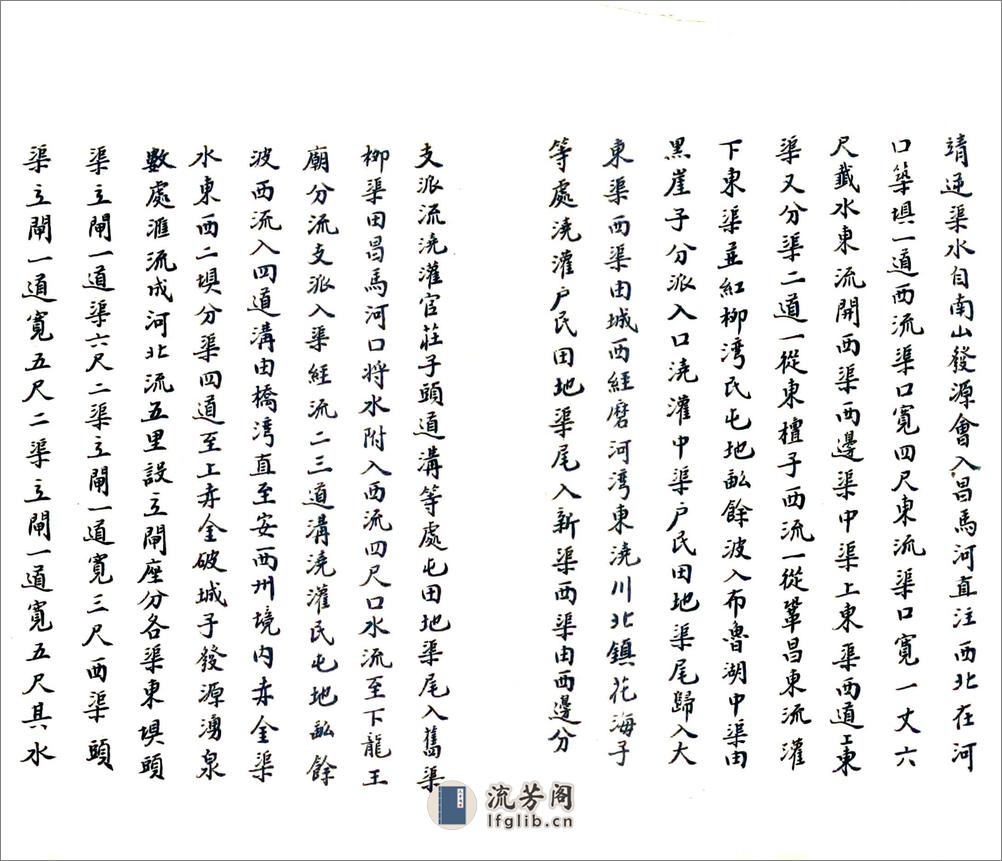 靖逆渠水自南山發源會入昌馬河直注西北在河
口築埧一道西流渠口寬四尺東流渠口寬一丈六
尺截水東流開西渠西邊渠中渠上東渠西道上東
渠又分渠二道一從東檀子西流一從鞏昌東流灌
下東渠並紅柳灣民屯地畝餘波入布魯湖中渠由
黑崖子分派入口澆灌中渠户民田地渠尾歸入大
東渠西渠由城西經磨河灣東澆川北鎮花海子
等處澆灌户民田地渠尾入新渠西渠由西邊分
支派流澆灌官莊子頭道溝等處屯田地渠尾入舊渠
柳渠田昌馬河口将水附入西流四尺口水流至下龍王
廟分流支派入渠經流二三道溝澆灌民屯地畝餘
波西流入四道溝由橋湾直至安西州境内赤金渠
水東西二埧分渠四道至上赤金破城子發源湧泉
數處滙流成河北流五里設立閘座分各渠東埧頭
渠立閘一道渠六尺二渠立閘一道寬三尺西渠頭
渠立閘一道寬五尺二渠立閘一道寬五尺其水
流芳阁
lfglib.cn